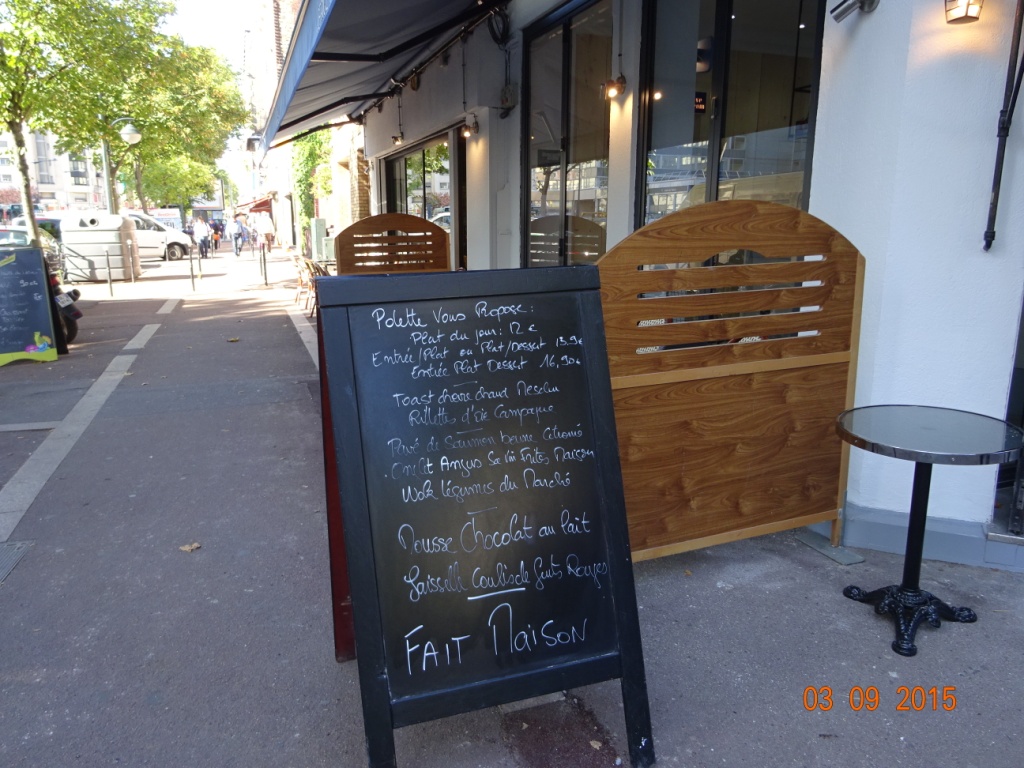 Polette Vous Propose:
Plat du jour: 12 €
Entrée/Plat ou Plat/Dessert 13.9€
Entrée Plat Dessert 16,90€
Toast chèvre chaud Mesclun
Rillettes d'oie Campagne
Pavé de Saumon beurre Citronné
Angus Frites Maison
Wok légumes du Marché
Mousse Chocolat au lait
Faisselle Coulis de fruits Rouges
FAIT MAISON
03 09 2015